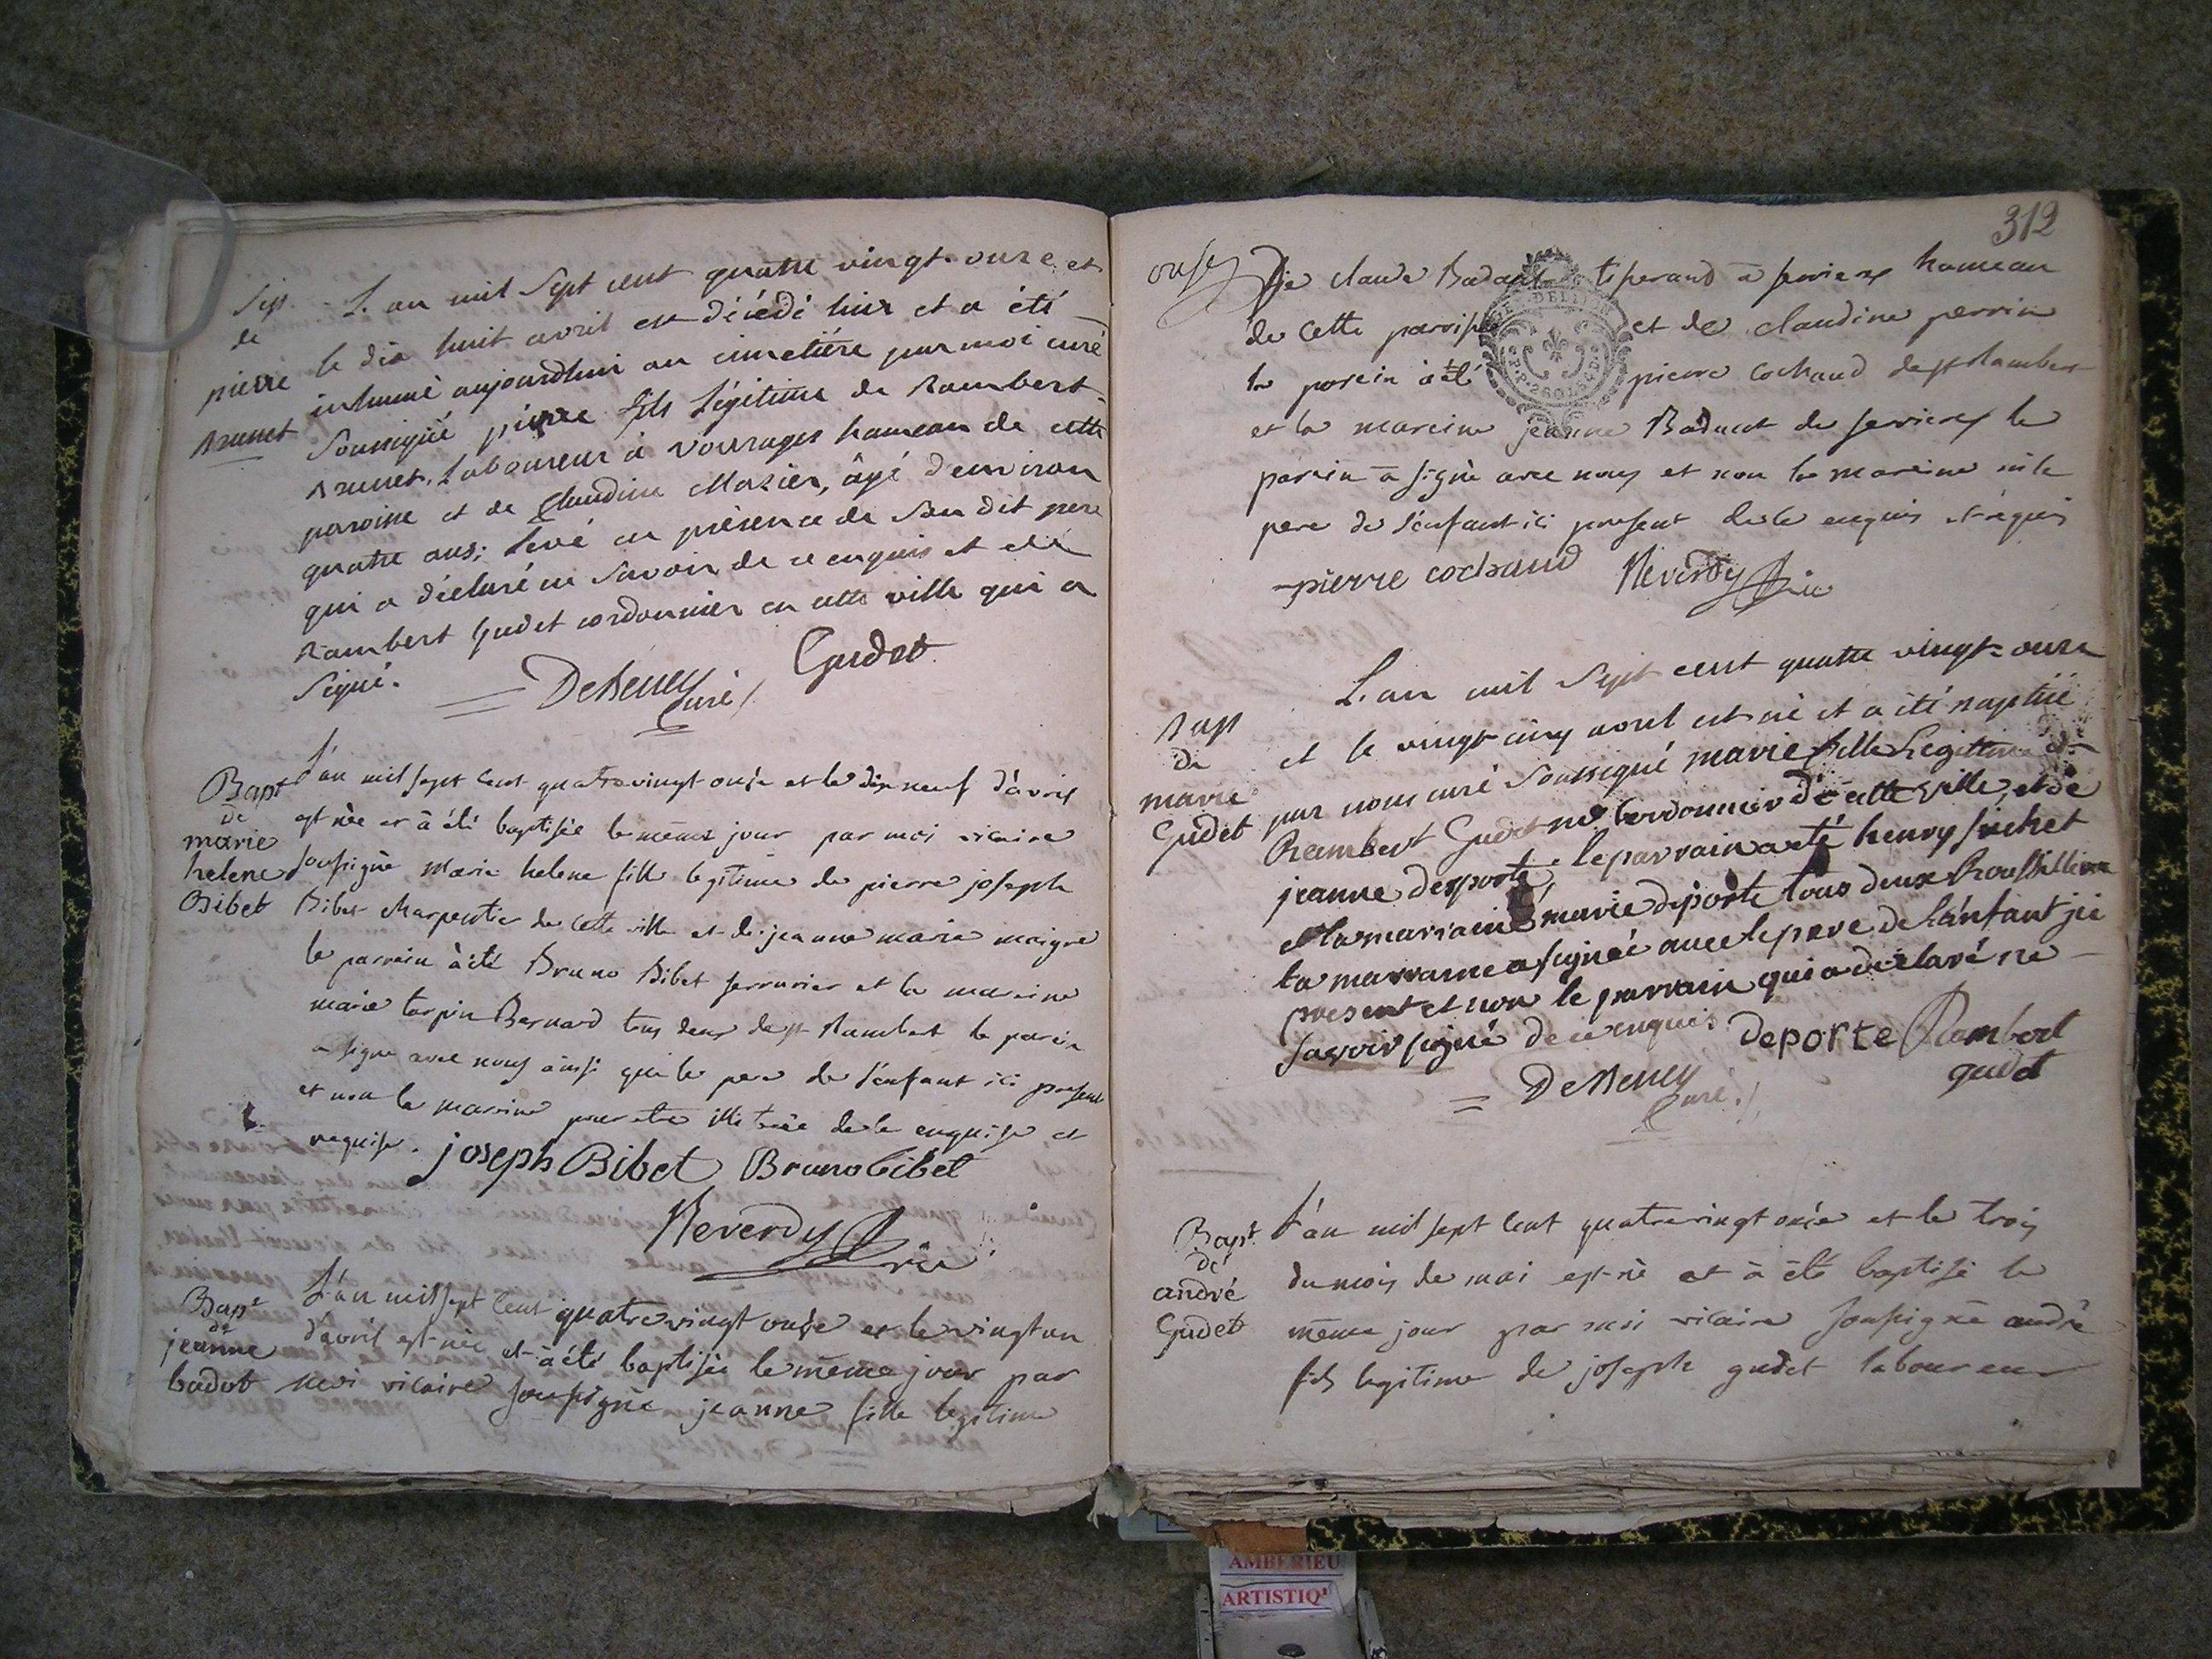 Sep.
de
pierre
Brunet
L'an mil Sept cent quatre vingt-onze et
le dix huit avril est décédé hier et a été
inhumé aujourdhui au cimetière par moi curé
Soussigné pierre fils légitime de Rambert
Brunet, Laboureur à vourages hameau de cette
paroisse et de Claudine Mozier, âgé d'environ
quatre ans; Levé en présence de Son dit pere
qui a déclaré ne Savoir de ce enquis et de
Rambert Gudet cordonnier en cette ville qui a
Signé.
Gudet
curé
Bapt
de
marie
helene
Bibet
L'an mil sept cent quatrevingt onse et le dix neuf d'avril
est née et à été baptisée le même jour par moi vicaire
soussigné marie helene fille legitime de pierre joseph
Bibet charpentier de cette ville et de jeanne marie maigre
le parrein à été Bruno Bibet serrurier et la mareine
marie tarpin Bernard tous deux de st Rambert le parein
a signé avec nous ainsi que le pere de l'enfant ici present
et non la mareine pour etre illitrée de ce enquise et
requise.
joseph Bibet Bruno bibet
Reverdy vic
Bapt
de
jeanne
badot
L'an mil sept cent quatrevingt onse et le vingt un
d'avril est née et à été baptisée le même jour par
moi vicaire soussigné jeanne fille legitime
312
onse
de claude tiserand à serrieres hameau
de cette paroisse et de claudine perrin
le parein à été pierre cochand de st Rambert
et la mareine jeanne de serrieres le
parein a signé avec nous et non la mareine ni le
pere de l'enfant ici present de ce enquis et réquis
pierre cochand Reverdy vic
Bap
de
marie
Gudet
L'an mil Sept cent quatre vingt-onze
et le vingt-cinq avril est né et a été baptisé
par nous curé Soussigné marie fille Legitime de
Rambert Gudet me Cordonnier de cette ville, et de
jeanne desporte, le parrain a été henry suchet
et la marraine marie deporte tous deux
la marraine a signéé avec le pere de l'anfant jci
present et non le parrain qui a déclaré ne
savoir signé de ce enquis
deporte Rambert
gudet
curé.
Bapt
de
andré
Gudet
L'an mil sept cent quatrevingt onze et le trois
du mois de mai est né et à été baptisé le
même jour par moi vicaire soussigné andré
fils legitime de joseph gudet laboureur
AMBERIEU
ARTISTIQ'